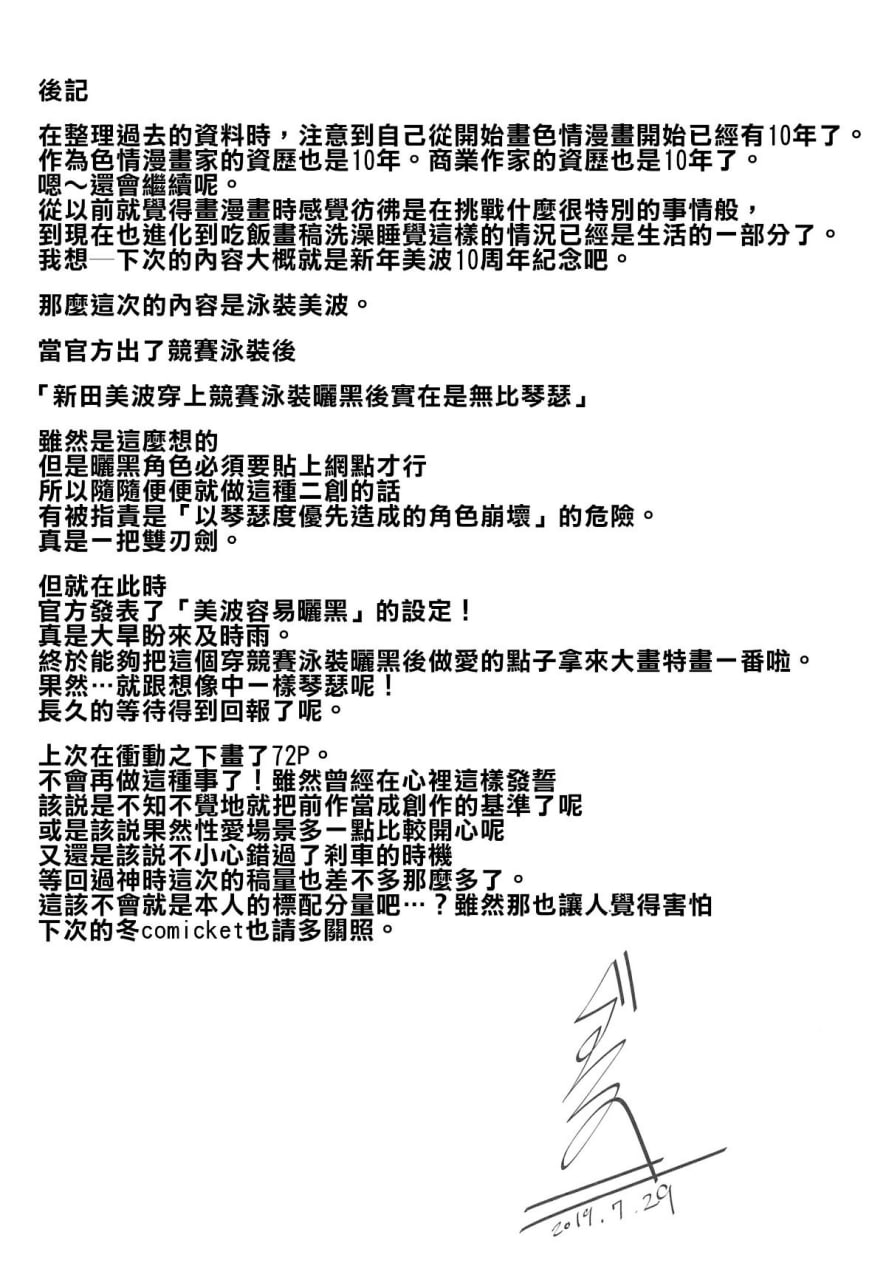 後記
在整理過去的資料時，注意到自己從開始畫色情漫畫開始已經有10年了。
作為色情漫畫家的資歷也是10年。商業作家的資歷也是10年了。
嗯～還會繼續呢。
從以前就覺得畫漫畫時感覺彷彿是在挑戰什麼很特別的事情般，
到現在也進化到吃飯畫稿洗澡睡覺這樣的情況已經是生活的一部分了。
我想─下次的內容大概就是新年美波10周年紀念吧。
那麼這次的內容是泳裝美波。
當官方出了競賽泳裝後
「新田美波穿上競賽泳裝曬黑後實在是無比琴瑟」
雖然是這麼想的
但是曬黑角色必須要貼上網點才行
所以隨隨便便就做這種二創的話
有被指責是「以琴瑟度優先造成的角色崩壞」的危險。
真是一把雙刃劍。
但就在此時
官方發表了「美波容易曬黑」的設定！
真是大旱盼來及時雨。
終於能夠把這個穿競賽泳裝曬黑後做愛的點子拿來大畫特畫一番啦。
果然…就跟想像中一樣琴瑟呢！
長久的等待得到回報了呢。
上次在衝動之下畫了72P。
不會再做這種事了！雖然曾經在心裡這樣發誓
該説是不知不覺地就把前作當成創作的基準了呢
或是該説果然性愛場景多一點比較開心呢
又還是該説不小心錯過了剎車的時機
等回過神時這次的稿量也差不多那麼多了。
這該不會就是本人的標配分量吧…？雖然那也讓人覺得害怕
下次的冬comicket也請多關照。
2019.7.29